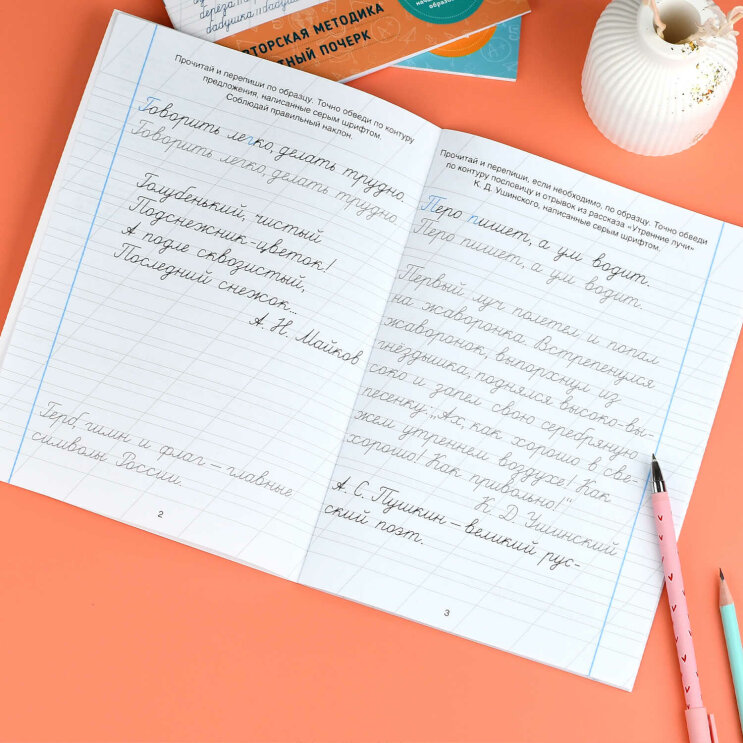 дедушка
АВТОРСКАЯ МЕТОДИКА
ПОЧЕРК
Прочитай и перепиши по образцу. Точно обведи по контуру
предложения, написанные серым шрифтом.
Соблюдай правильный наклон.
Говорить легко, делать трудно.
Говорить легко, делать трудно.
Голубенький, чистый
Подснежник-цветок!
А подле сквозистый,
Последний снежок...
А. Н. Майков
Герб, гимн и флаг – главные
символы России.
2
Прочитай и перепиши, если необходимо, по образцу. Точно обведи
по контуру пословицу и отрывок из рассказа «Утренние лучи»
К. Д. Ушинского, написанные серым шрифтом.
Перо пишет, а ум водит.
Перо пишет, а ум водит.
Первый луч полетел и попал
на жаворонка. Встрепенулся
жаворонок, выпорхнул из
гнёздышка, поднялся высоко-вы-
соко и запел свою серебряную
песенку: „Ах, как хорошо в све-
жем утреннем воздухе! Как
хорошо! Как привольно!"
К. Д. Ушинский
А. С. Пушкин – великий рус-
ский поэт.
3